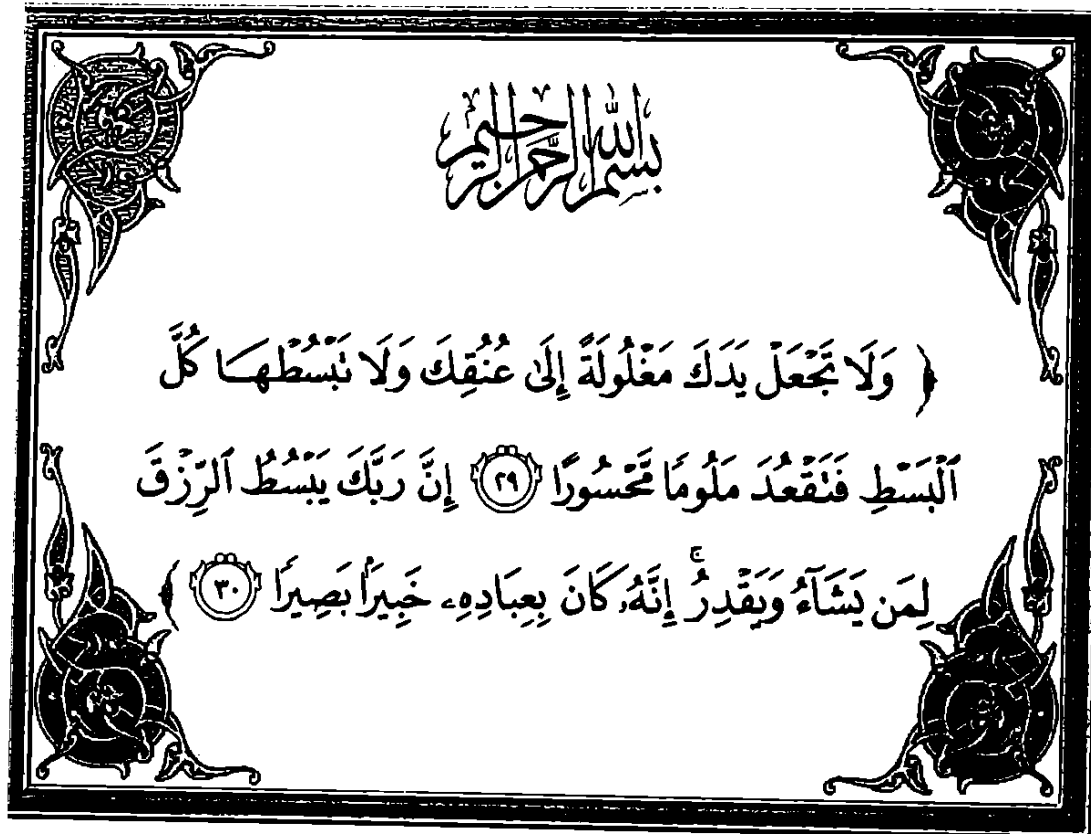 بِسْمِ اللهِ الرَّحْمنِ الرَّحِيمِ
﴿ وَلَا تَجْعَلْ يَدَكَ مَغْلُولَةً إِلَىٰ عُنُقِكَ وَلَا تَبْسُطْهَا كُلَّ
ٱلْبَسْطِ فَتَقْعُدَ مَلُومًا مَّحْسُورًا ۝٢٩ إِنَّ رَبَّكَ يَبْسُطُ ٱلرِّزْقَ
لِمَن يَشَآءُ وَيَقْدِرُ ۚ إِنَّهُۥ كَانَ بِعِبَادِهِۦ خَبِيرًۢا بَصِيرًا ۝٣٠ ﴾